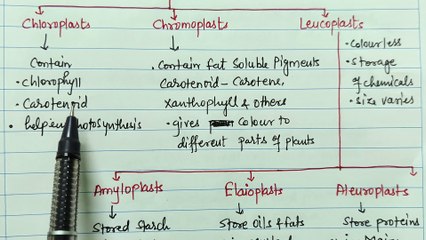 Chloroplasts
Chromoplasts
Leucoplasts
Contain
• Chlorophyll
• Carotenoid
• help in photosynthesis
• Contain Fat Soluble Pigments
Carotenoid - Carotene,
Xanthophyll & others
• gives colour to
different parts of plants
• Colourless
• Storage
of chemicals
• Size varies
Amyloplasts
Elaioplasts
Aleuroplasts
Stored Starch
Store Oils & fats
Store proteins